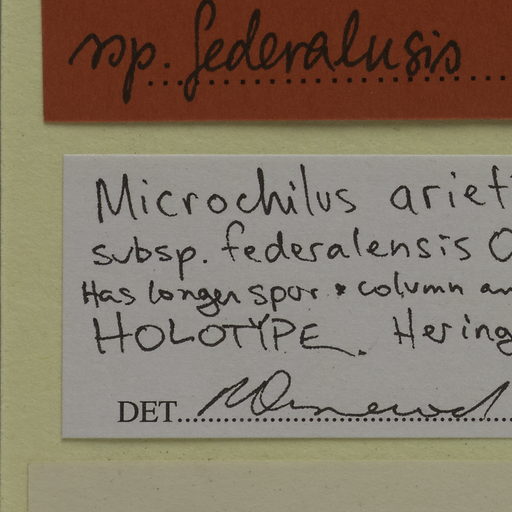 ssp. federalusis
Microchilus ariet
subsp. federalensis O
Has longer spur & column an
HOLOTYPE. Hering
DET